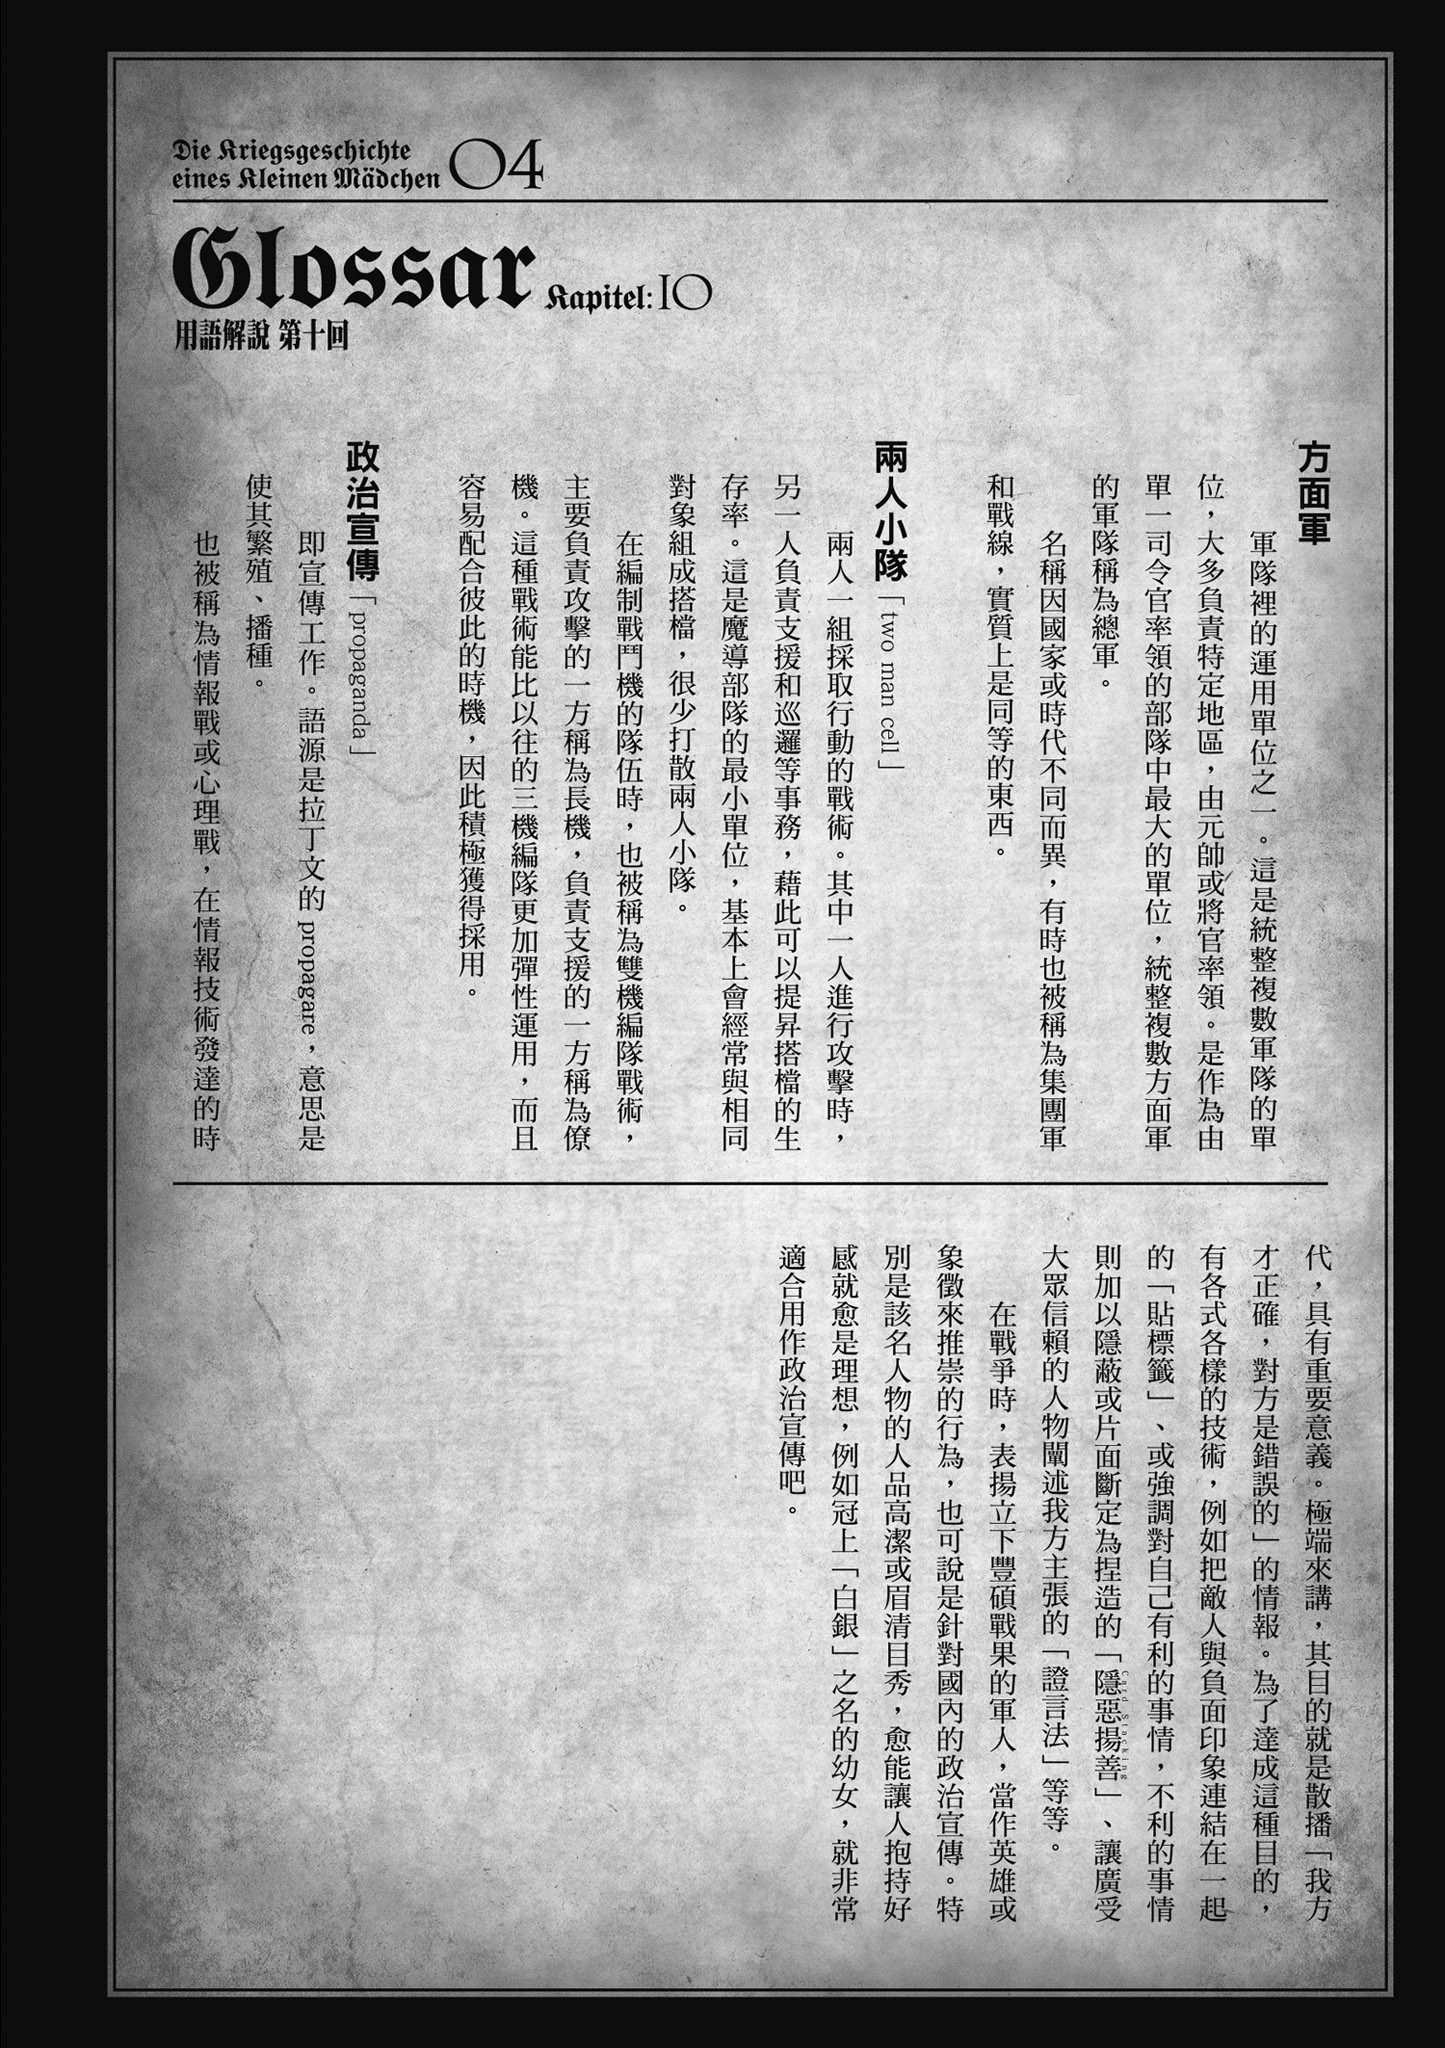 Die Kriegsgeschichte
eines Kleinen Mädchen 04
Glossar Kapitel:10
用語解說 第十回
方面軍
軍隊裡的運用單位之一。這是統整複數軍隊的單
位，大多負責特定地區，由元帥或將官率領。是作為由
單一司令官率領的部隊中最大的單位，統整複數方面軍
的軍隊稱為總軍。
名稱因國家或時代不同而異，有時也被稱為集團軍
和戰線，實質上是同等的東西。
兩人小隊「two man cell」
兩人一組採取行動的戰術。其中一人進行攻擊時，
另一人負責支援和巡邏等事務，藉此可以提昇搭檔的生
存率。這是魔導部隊的最小單位，基本上會經常與相同
對象組成搭檔，很少打散兩人小隊。
在編制戰鬥機的隊伍時，也被稱為雙機編隊戰術，
主要負責攻擊的一方稱為長機，負責支援的一方稱為僚
機。這種戰術能比以往的三機編隊更加彈性運用，而且
容易配合彼此的時機，因此積極獲得採用。
政治宣傳「propaganda」
即宣傳工作。語源是拉丁文的 propagare，意思是
使其繁殖、播種。
也被稱為情報戰或心理戰，在情報技術發達的時
代，具有重要意義。極端來講，其目的就是散播「我方
才正確，對方是錯誤的」的情報。為了達成這種目的，
有各式各樣的技術，例如把敵人與負面印象連結在一起
的「貼標籤」、或強調對自己有利的事情，不利的事情
則加以隱蔽或片面斷定為捏造的「隱惡揚善」、讓廣受
Card Stacking
大眾信賴的人物闡述我方主張的「證言法」等等。
在戰爭時，表揚立下豐碩戰果的軍人，當作英雄或
象徵來推崇的行為，也可說是針對國內的政治宣傳。特
別是該名人物的人品高潔或眉清目秀，愈能讓人抱持好
感就愈是理想，例如冠上「白銀」之名的幼女，就非常
適合用作政治宣傳吧。